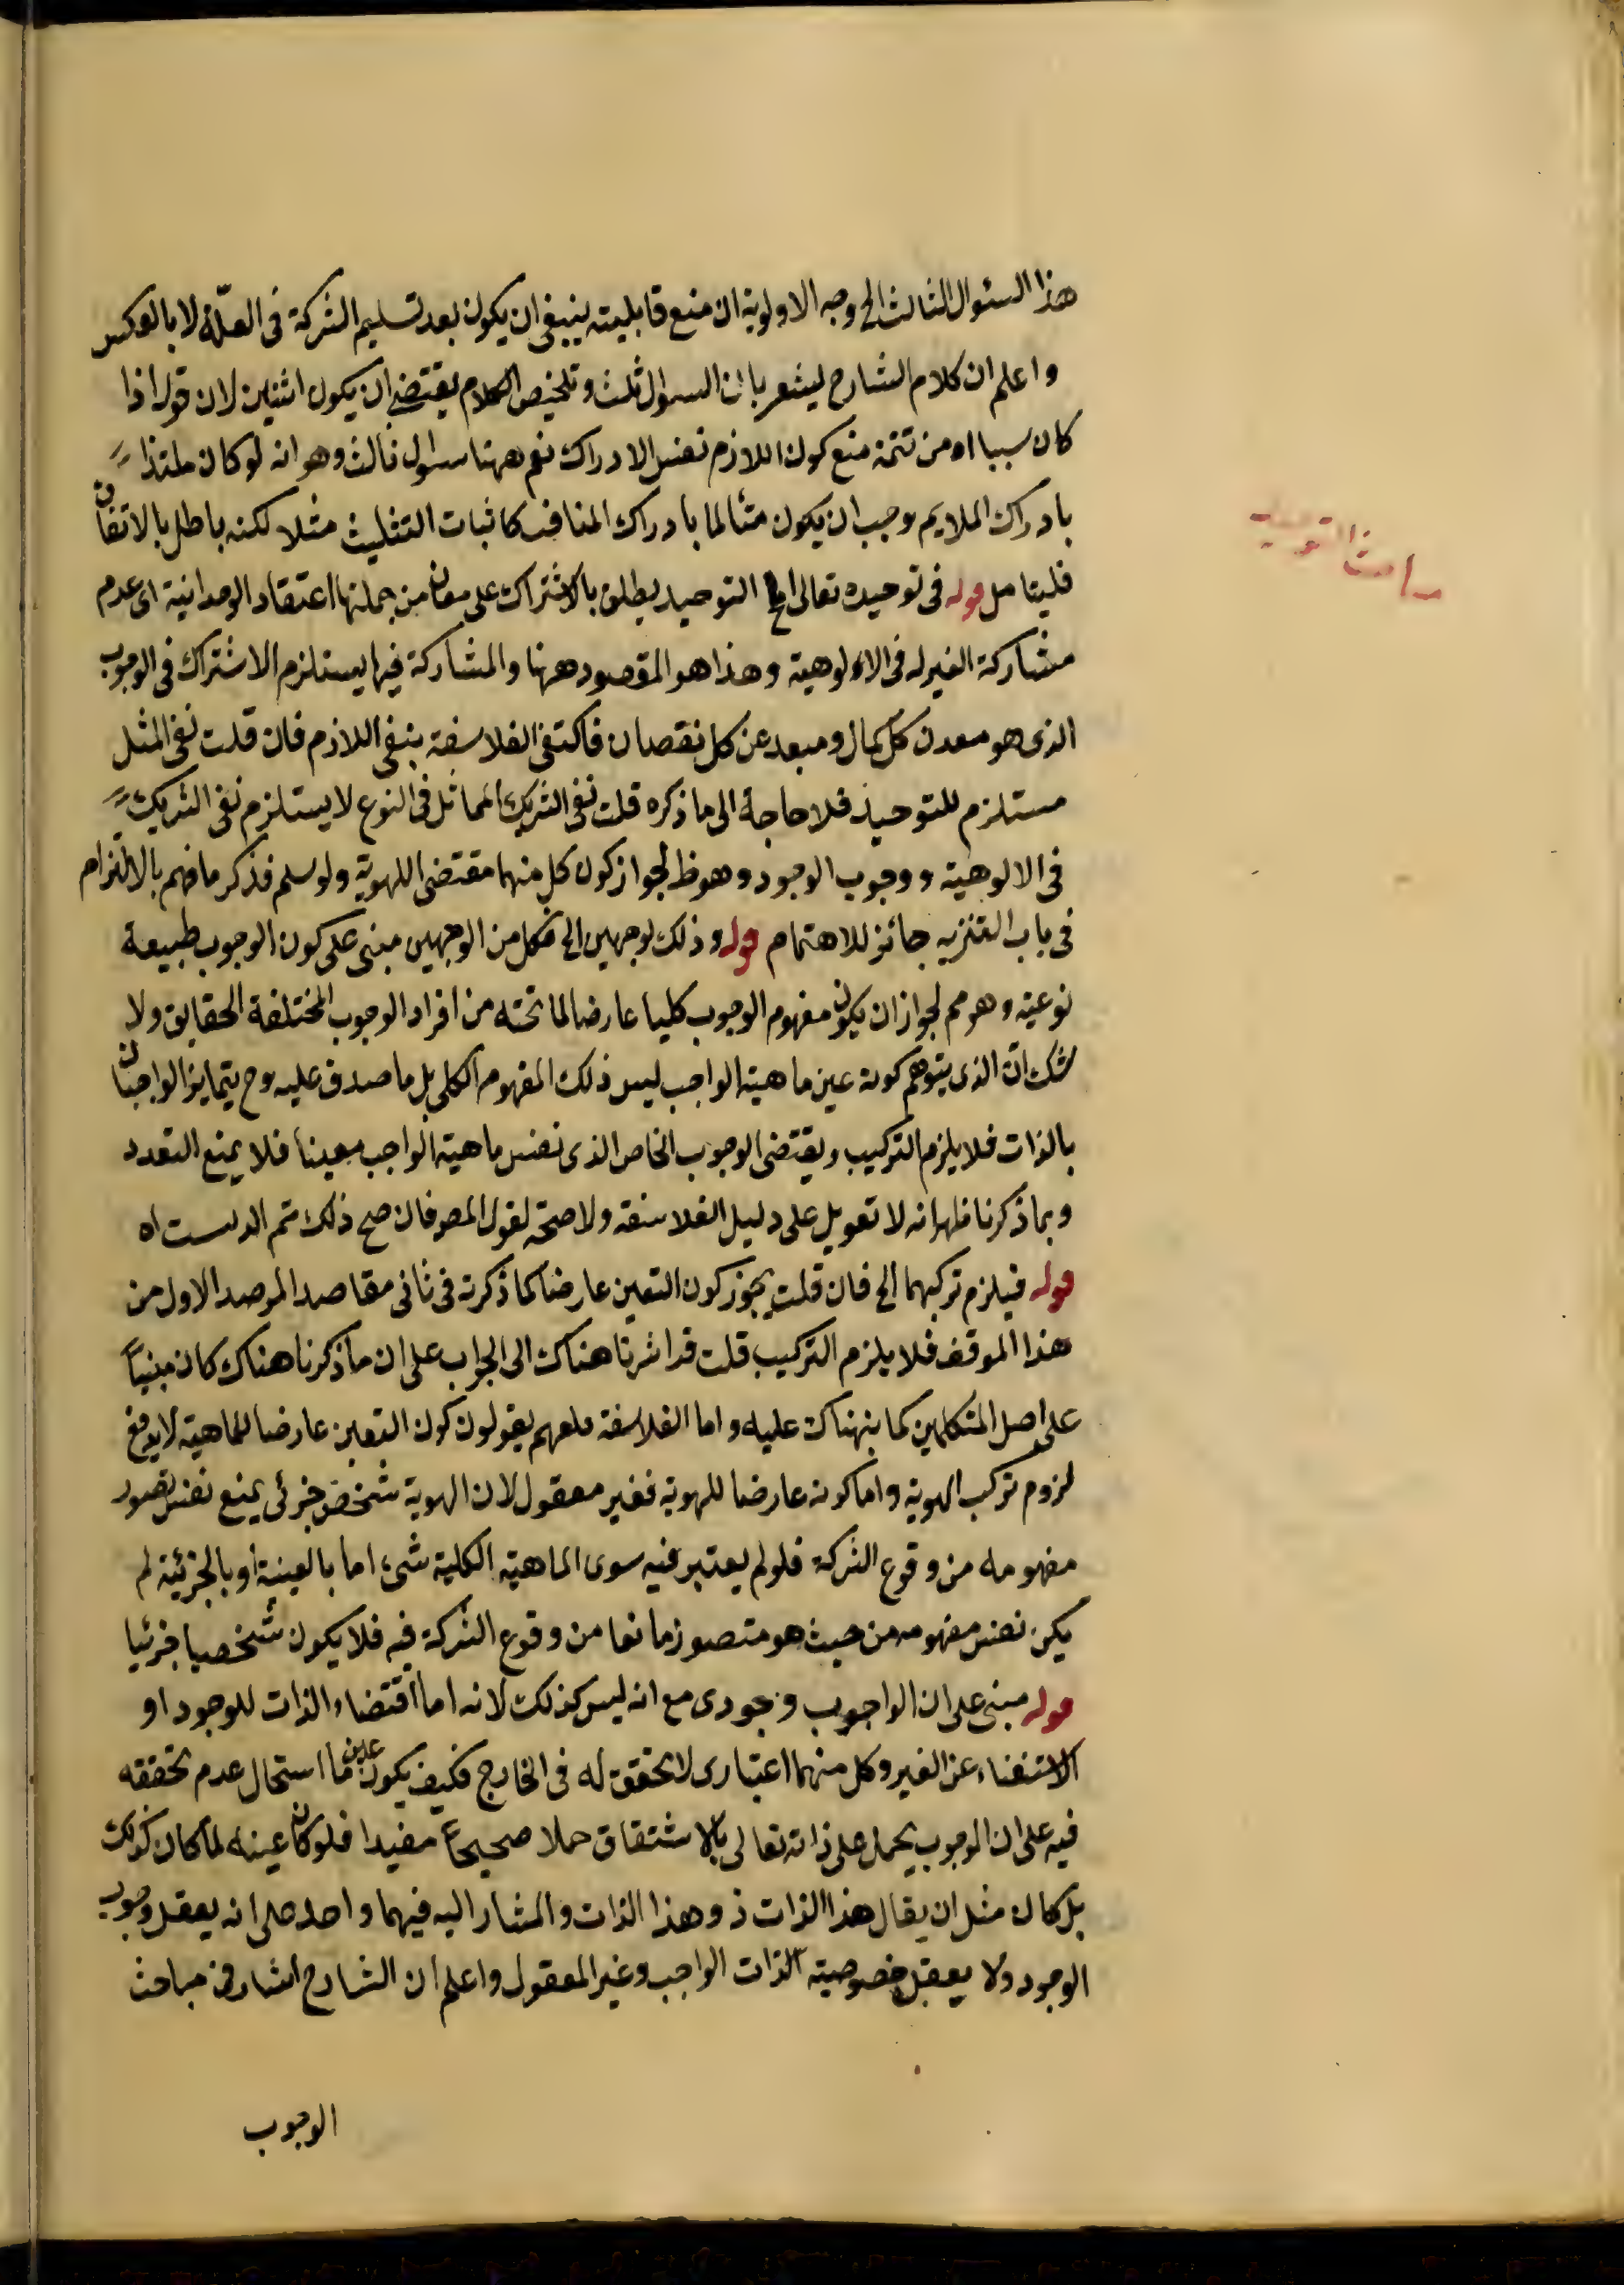 هذا السئوال الثالث الخ وجه الاولوية ان منع قابليته ينبغى ان يكون بعد تسليم الشركة فى العلّة لا بالعكس
واعلم ان كلام الشارح ليشعر بان السوال ثلث وتلخيص الكلام يقتضى ان يكون اثنين لان قوله اذا
كان سببا اه من تتمة منع كون اللازم نفس الادراك نعم ههنا سوال ثالث وهو انه لو كان ملتذا
بادراك الملايم وجب ان يكون متألما بادراك المنافى كاثبات التثليث مثلا لكنه باطل بالاتفاق
فليتامل قوله فى توحيده تعالى الخ التوحيد يطلق بالاشتراك على معان من جملتها اعتقاد الوحدانية اى عدم
مشاركة الغير له فى الالوهية وهذا هو المقصود ههنا والمشاركة فيها يستلزم الاشتراك فى الوجوب
الذى هو معدن كل كمال ومبعد عن كل نقصان فاكتفى الفلاسفة بنفى اللازم فان قلت نفى المثل
مستلزم للتوحيد فلا حاجة الى ما ذكره قلت نفى الشريك المماثل فى النوع لا يستلزم نفى الشريك
فى الالوهية ووجوب الوجود وهو ظ لجواز كون كل منهما مقتضى اللهوية ولو سلم فذكر ما فهم بالالتزام
فى باب التنزيه جائز للاهتمام قوله وذلك لوجهين الخ فكل من الوجهين مبنى على كون الوجوب طبيعة
نوعية وهو مم لجواز ان يكون مفهوم الوجوب كليا عارضا لما تحته من افراد الوجوب المختلفة الحقايق ولا
شك ان الذى يتوهم كونه عين ماهية الواجب ليس ذلك المفهوم الكلى بل ما صدق عليه وح يتمايز الواجبان
بالذات فلا يلزم التركيب ويقتضى الوجوب الخاص الذى نفس ماهية الواجب معينا فلا يمنع التعدد
وبما ذكرنا ظهر انه لا تعويل على دليل الفلاسفة ولا صحة لقول المص فان صح ذلك تم الدست اه
قوله فيلزم تركبهما الخ فان قلت يجوز كون التعين عارضا كما ذكرته فى ثانى مقاصد المرصد الاول من
هذا الموقف فلا يلزم التركيب قلت قد اشرنا هناك الى الجواب على ان ما ذكرنا هناك كان مبنيا
على اصل المتكلمين كما نبهناك عليه واما الفلاسفة فلعهم يقولون كون التعين عارضا للماهية لا يدفع
لزوم تركب الهوية واما كونه عارضا للهوية فغير معقول لان الهوية شخص جزئى يمنع نفس تصور
مفهومه من وقوع الشركة فلو لم يعتبر فيه سوى الماهية الكلية شىء اما بالعينية او بالجزئية لم
يكن نفس مفهومه من حيث هو متصور مانعا من وقوع الشركة فيه فلا يكون شخصيا جزئيا
قوله مبنى على ان الواجوب وجودى مع انه ليس كذلك لانه اما اقتضاء الذات للوجود او
الاستغناء عن الغير وكل منهما اعتبارى لا تحقق له فى الخارج فكيف يكون عين ما استحال عدم تحققه
فيه على ان الوجوب يحمل على ذاته تعالى بالاشتقاق حملا صحيحا مفيدا فلو كان عينه لما كان كذلك
بل كان مثل ان يقال هذا الذات ذو هذا الذات والمشار اليه فيهما واحد على انه يعقل وجوب
الوجود ولا يعقل خصوصية الذات الواجب وغير المعقول واعلم ان الشارح اشار فى مباحث
الوجوب